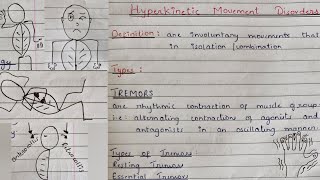 Hyperkinetic Movement Disorders
Definition: are involuntary movements that
in isolation/combination
Types:
TREMORS
are rhythmic contraction of muscle groups
i.e: alternating contraction of agonists and
antagonists in an oscillating manner
Types of Tremors
Resting Tremor
Essential Tremor